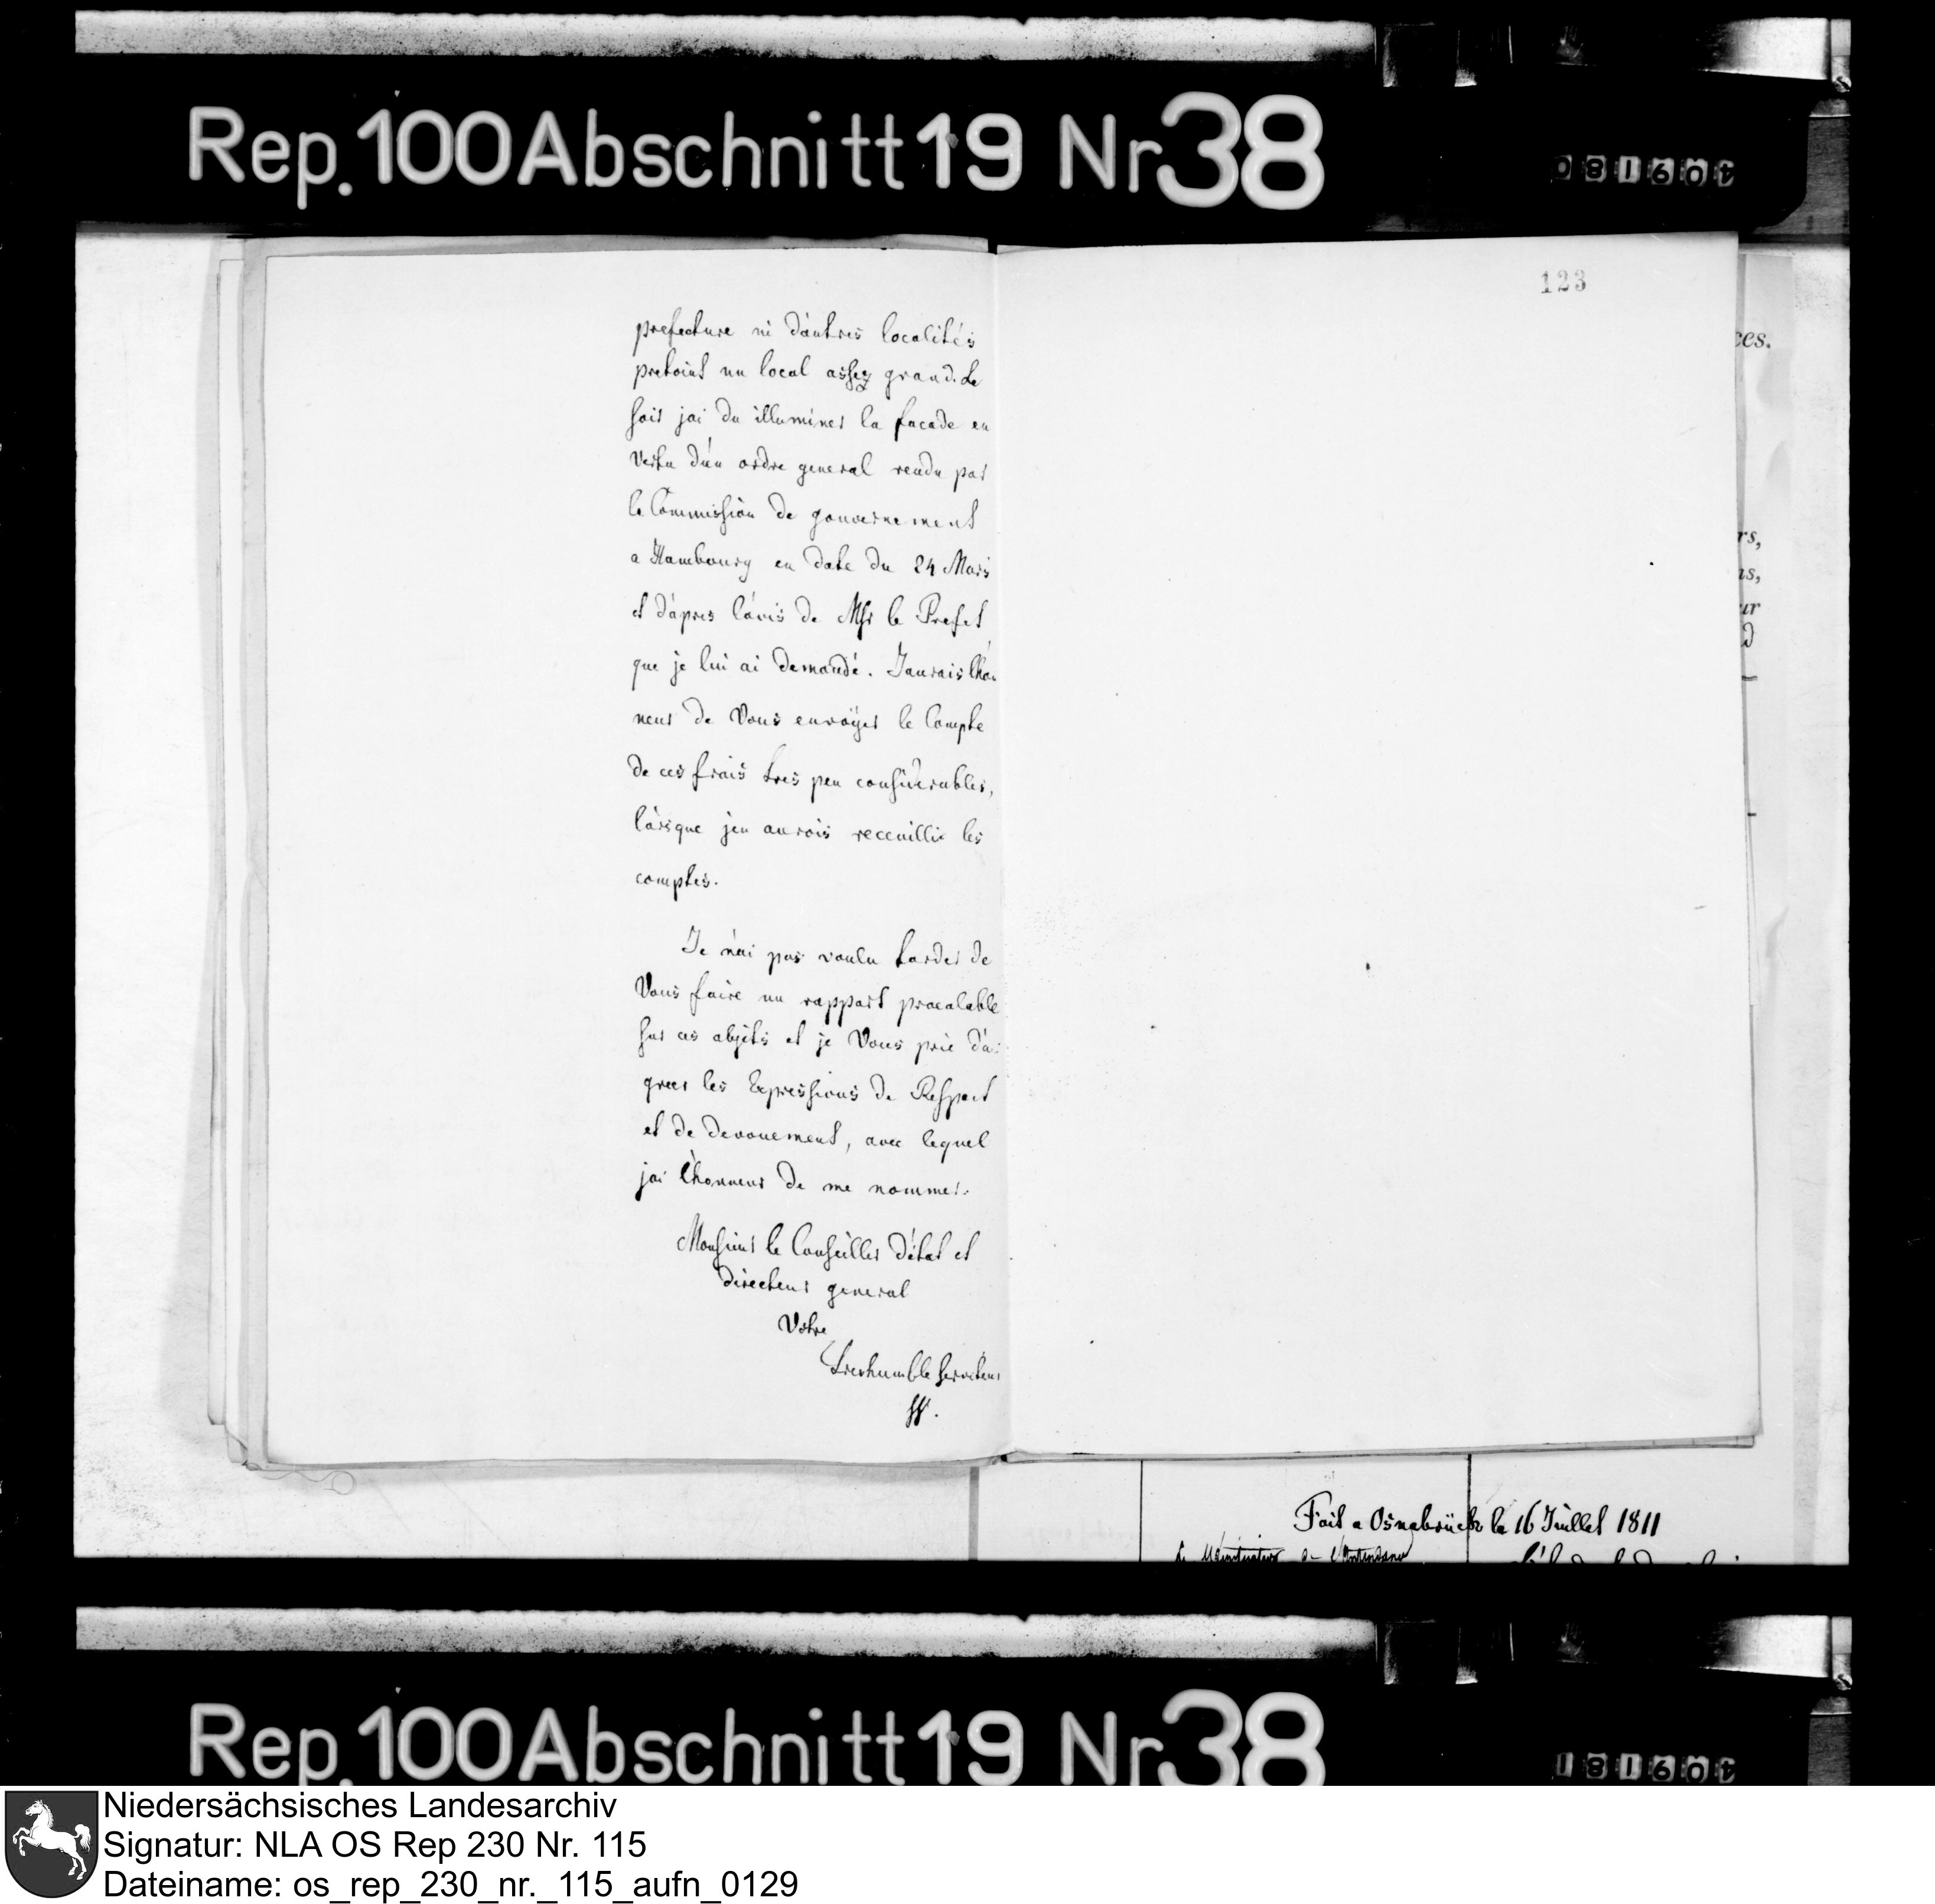 Rep. 100 Abschnitt 19 Nr 38
123
prefecture ni d'autres localités
pretoint un local assez grand. Le
soir jai du illuminer la facade en
vertu d'un ordre general rendu par
le Commission de gouvernement
a Hambourg en date du 24 Mars
et d'apres l'avis de Msr le Prefet
que je lui ai demandé. Jaurais lhon
neur de Vous envoÿer le Compte
de ces frais tres peu considerables,
lorsque jen aurois receuillie les
comptes.
Je n'ai pas voulu tarder de
Vous faire un rapport praealable
sur ces objets et je Vous prie d'a-
greer les Expressions de Respect
et de devouement, avec lequel
jai l'honneur de me nommer.
Monsieur le Conseiller d'état et
directeur general
Votre
treshumble serviteur
ces.
rs,
ns,
ur
Fait a Osnabrück le 16 Juillet 1811
Rep. 100 Abschnitt 19 Nr 38
Niedersächsisches Landesarchiv
Signatur: NLA OS Rep 230 Nr. 115
Dateiname: os_rep_230_nr._115_aufn_0129